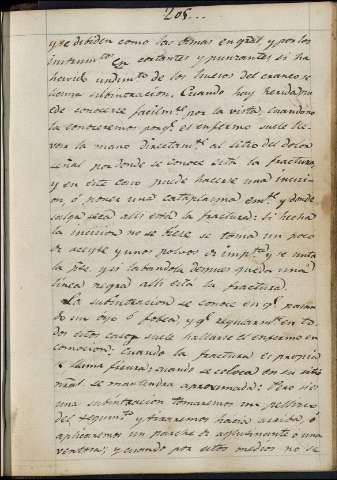 205...
y se dibiden como las otras en qdd y por los
instrumtos en cortantes y punzantes si ha
havido undimto de los huesos del craneo se
llama subintracion. Cuando hay herida pu
ede conocerse facilmte por la vista, cuando no
la conoceremos porqe el enfermo suele lle-
var la mano directamte al sitio del dolor
señal por donde se conoce esta la fractura
y en este caso puede hacerse una incisi-
on, ó poner una cataplasma emte y donde
salga seca alli está la fractura: si hecha
la incision no se viese se toma un poco
de aceyte y unos polvos de impta y se unta
la pte y si labandola despues queda una
linea negra alli esta la fractura.
La subintracion se conoce en qe pasan-
do un ojo ó fobea, y qe regularmte en to
dos estos casos suele hallarse el enfermo en
comocion: Cuando la fractura es propia
ó llama fisura; cuando se coloca en su sitio
natl. se mantendra aproximada: Pero si es
una subintracion tomaremos un pellizco
del tegumto y tiraremos hacia arriba, ó
aplicaremos un parche de aglutinante ó una
ventosa; y cuando por estos medios no se